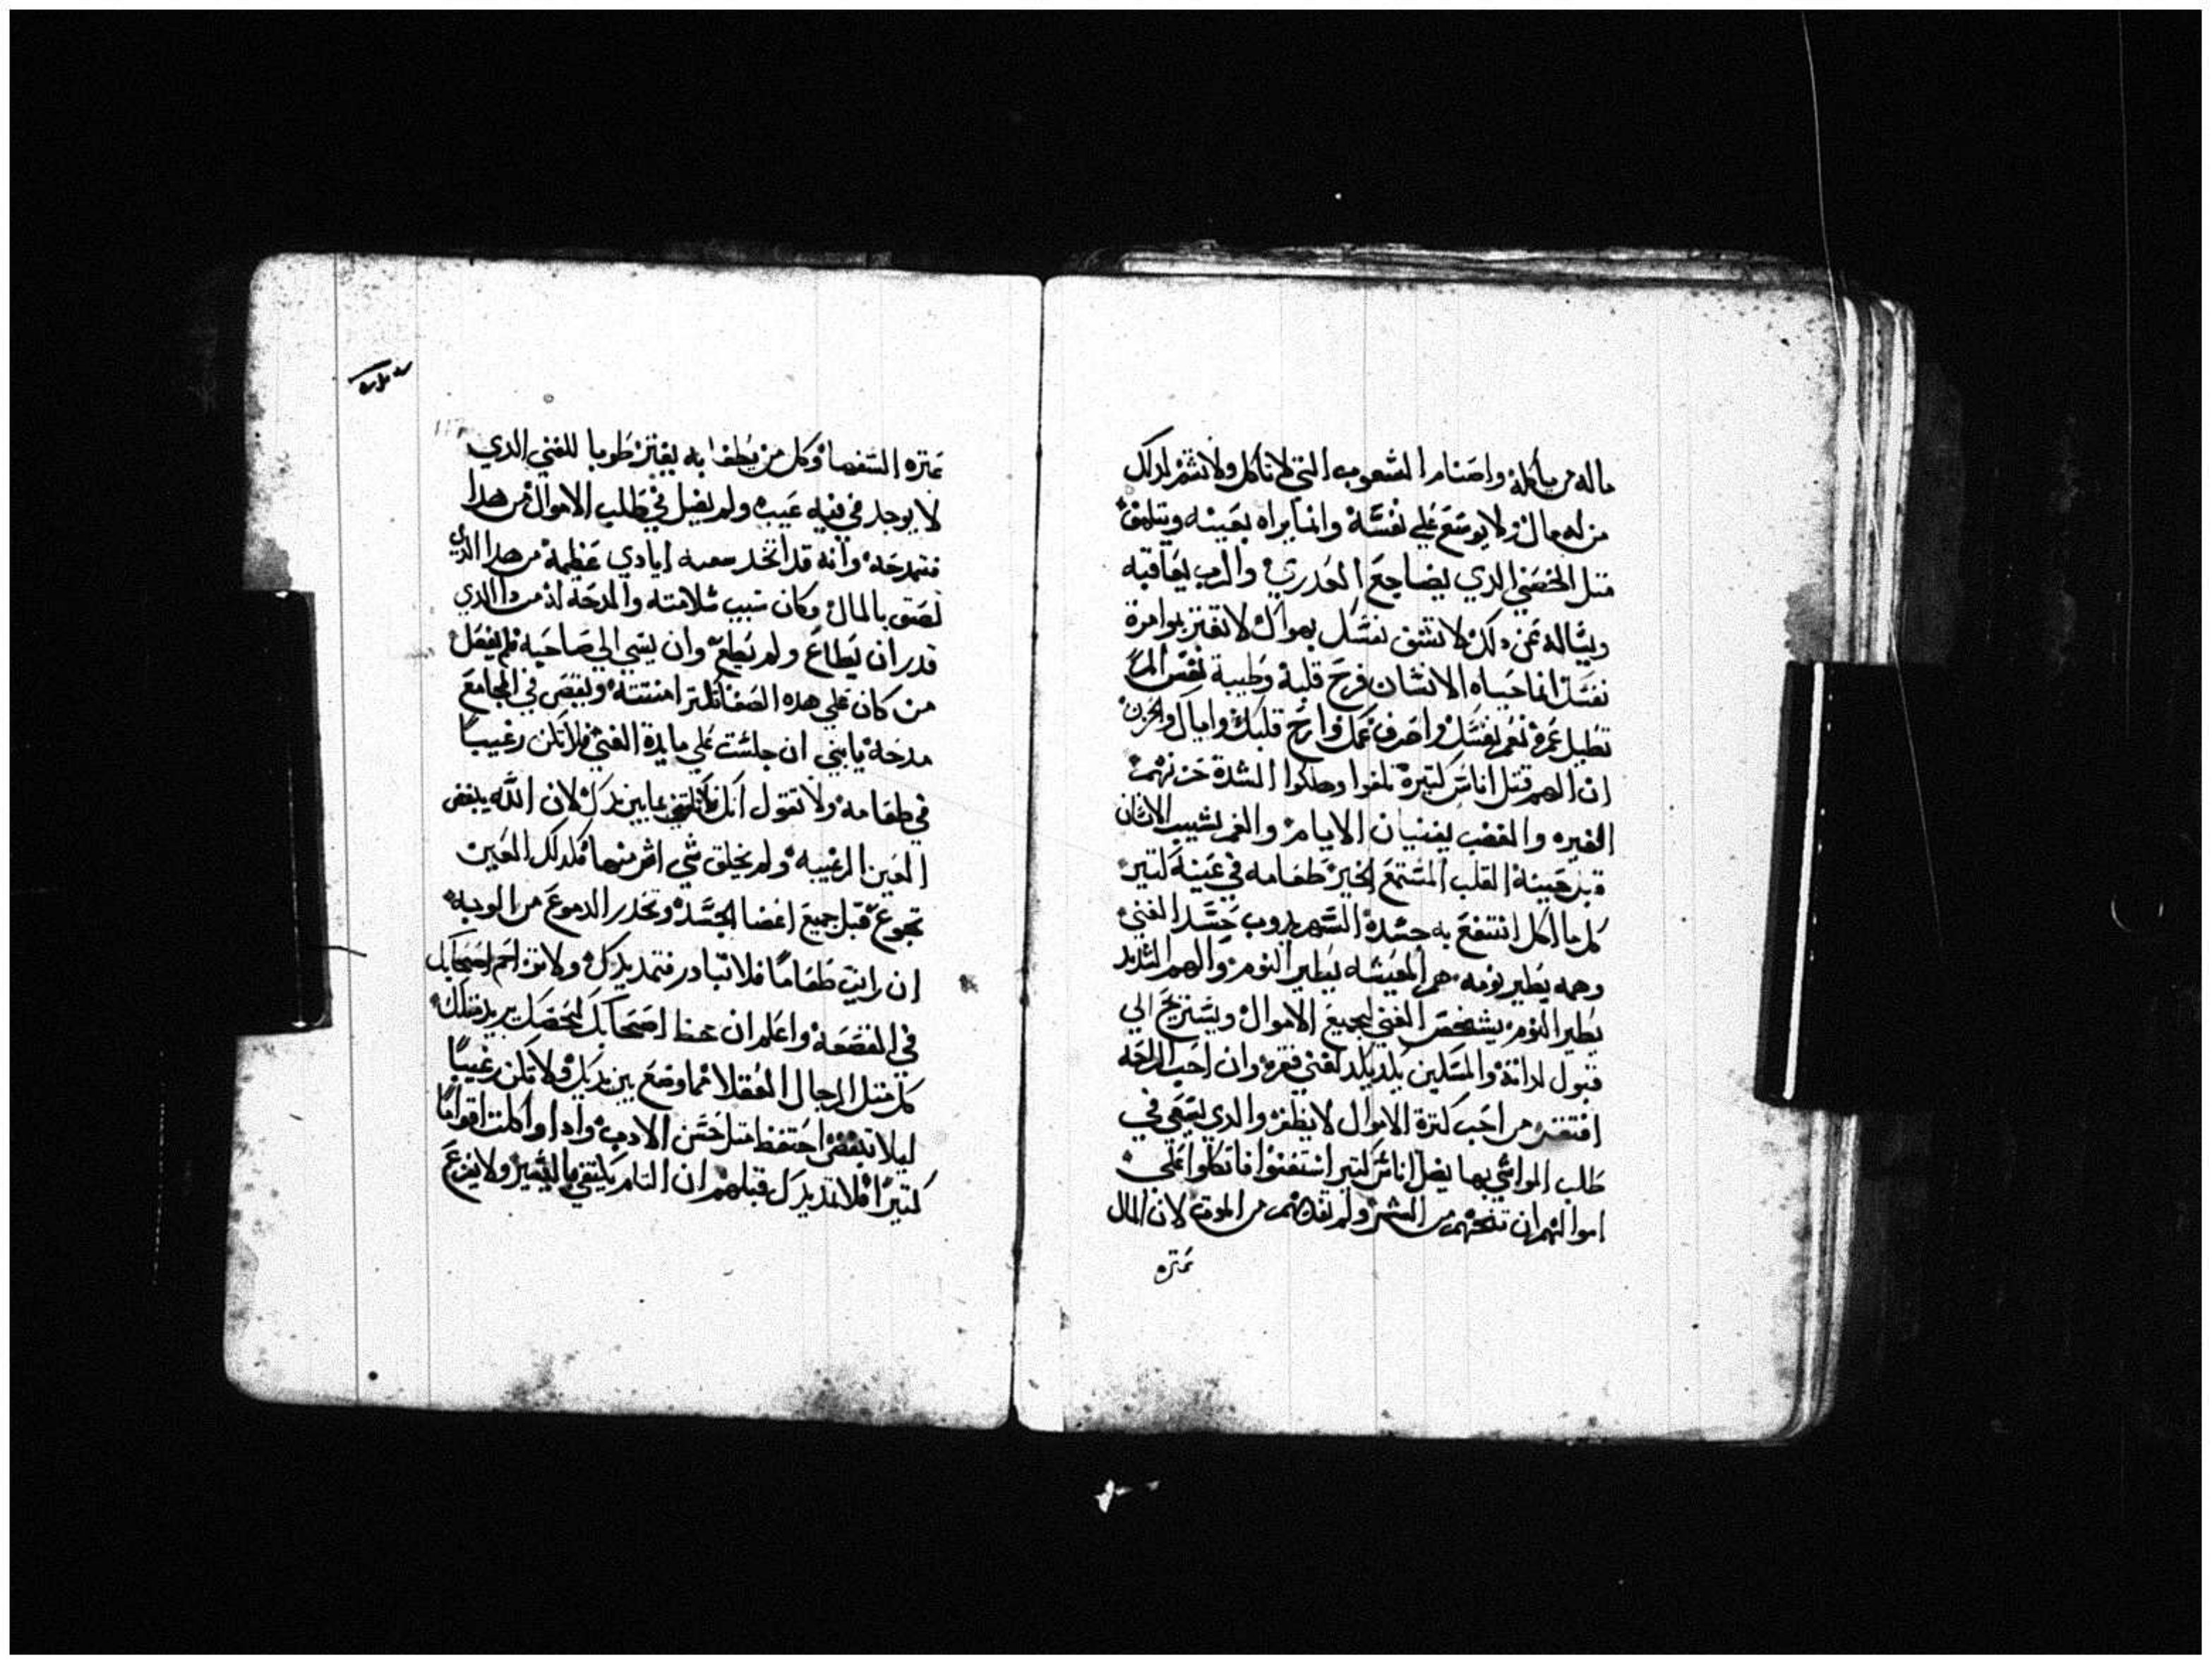 ماله من ياكله واصنام الشعوب التي لا تاكل ولا تشم لدلك
من له مال ولا يوسع علي نفسه وانما يراه بعينه ويتلهف
متل الخصي الدي يضاجع العدري والرب يعاقبه
ويساله عن دلك لا تشق نفسك بهواك لا تغتر بوامرة
نفسك انما حياه الانسان فرح قلبه وطيبة نفس المر
تطيل عمره نعم نفسك واصرف غمك وارح قلبك واياك والحزن
ان الهم قتل اناس كتيرة تلفوا وهلكوا الشدة حزنهم
الغيره والغضب يفنيان الايام والغم يشيب الانسان
قبل حينه القلب المستمع الخير طعامه في عينه كتير
كل ما اكل انتفع به جسده السهر يدوب جسد الغني
وهمه يطير نومه هم المعيشه يطير النوم والهم الشديد
يطير النوم يشخص الغني لجميع الاموال ويستريح الي
قبول لداته والمسكين يكد يكد لغني فقره وان احب الراحه
افتقر من احب كترة الاموال لا يظفر والدي يسعي في
طلب المواشي بها يضل اناس كتير استغنوا فاتكلوا علي
اموالهم ان تنجيهم من الشر ولم تقدهم من الموت لان المال
عتره
عتره السفها وكل من يطغا به يغتر طوبا للغني الدي
لا يوجد في فيه عيب ولم يضل في طلب الاموال من هدا
فنمدحه وانه قد اتخد سعيه ايادي عظيمة من هدا الدي
لصق بالمال وكان سبب سلامته والمدحة له من دا الدي
قدر ان يطاع ولم يطع وان يسي الي صاحبه فلم يفعل
من كان علي هده الصفا تكتر امنتته ويفضي في المجامع
مدحه يابني ان جلست علي مايدة الغني فلا تكن رغيبا
في طعامه ولا تقول انك لا تكتفي بما بين يدك لان الله يبغض
العين الرغيبه ولم يخلق شي اشر منها فلدلك العين
تجوع قبل جميع اعضا الجسد وتحدر الدموع من الوجه
ان رايت طعاما فلا تبادر فتمد يدك ولا تزاحم اصحابك
في القصعة واعلم ان حظ اصحابك كحضك يريد متلك
كل متل الرجال العقلا مما وضع بين يديك ولا تكن رغيبا
ليلا تبغض احتفظ متل حسن الادب وادا واكلت اقواما
كتيرا فلا تمد يدك قبلهم ان التام يكتفي باليسير ولا يفزع